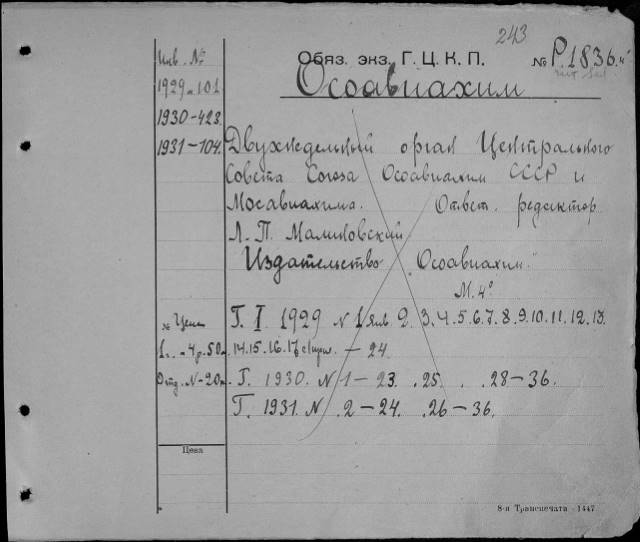 243
Обяз. экз. Г. Ц. К. П. № Р.1836.
Осоавиахим
Инв. №
1929-101.
1930-423.
1931-104.
Двухнедельный орган Центрального
Совета Союза Осоавиахим СССР и
Мосавиахима. Ответ. редактор
Л. П. Малиновский
Издательство "Осоавиахим"
М. 4°
Г. I. 1929 N 1 янв. 2. 3. 4. 5. 6. 7. 8. 9. 10. 11. 12. 13.
14. 15. 16. 17 – 24
Г. 1930. N 1 – 23. .25. . .28 – 36.
Г. 1931. N .2 – 24. .26 – 36.
№ Цена
1 г. – 4 р. 50 к.
Отд. N – 20 к.
Цена
8-я Транспечата - 1447